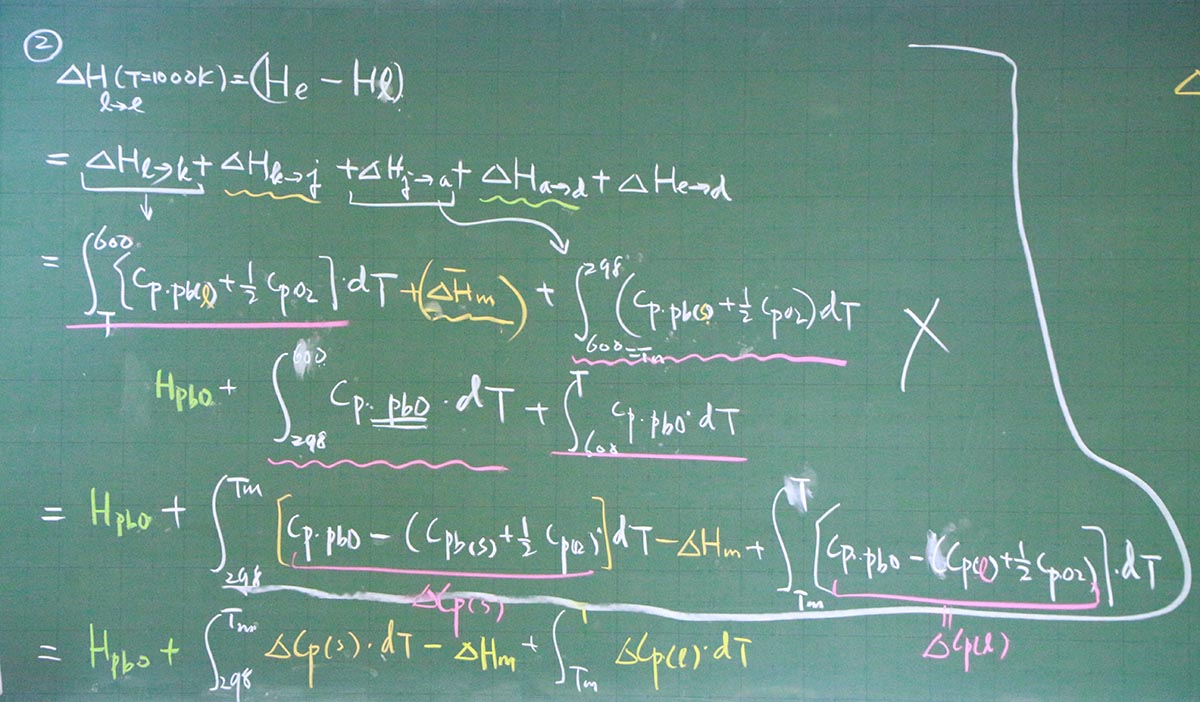 ②
ΔH(T=1000K)=(He − Hl)
l→e
= ΔHl→k + ΔHk→j + ΔHj→a + ΔHa→d + ΔHe→d
= ∫_T^600 {Cp.pb(l) + ½ Cpo2]·dT + (ΔHm) + ∫_{600=Tm}^298 (Cp.pb(s) + ½ Cpo2) dT X
Hpbo + ∫_298^600 Cp.pbO·dT + ∫_600^T Cp.pbo·dT
= Hpbo + ∫_298^Tm [Cp.pbO − (Cpb(s) + ½ Cpo2)] dT − ΔHm + ∫_Tm^T [Cp.pbO − (Cp(l) + ½ Cpo2)]·dT
ΔCp(s)
ΔCp(l)
= Hpbo + ∫_298^Tm ΔCp(s)·dT − ΔHm + ∫_Tm^T ΔCp(l)·dT
Δ